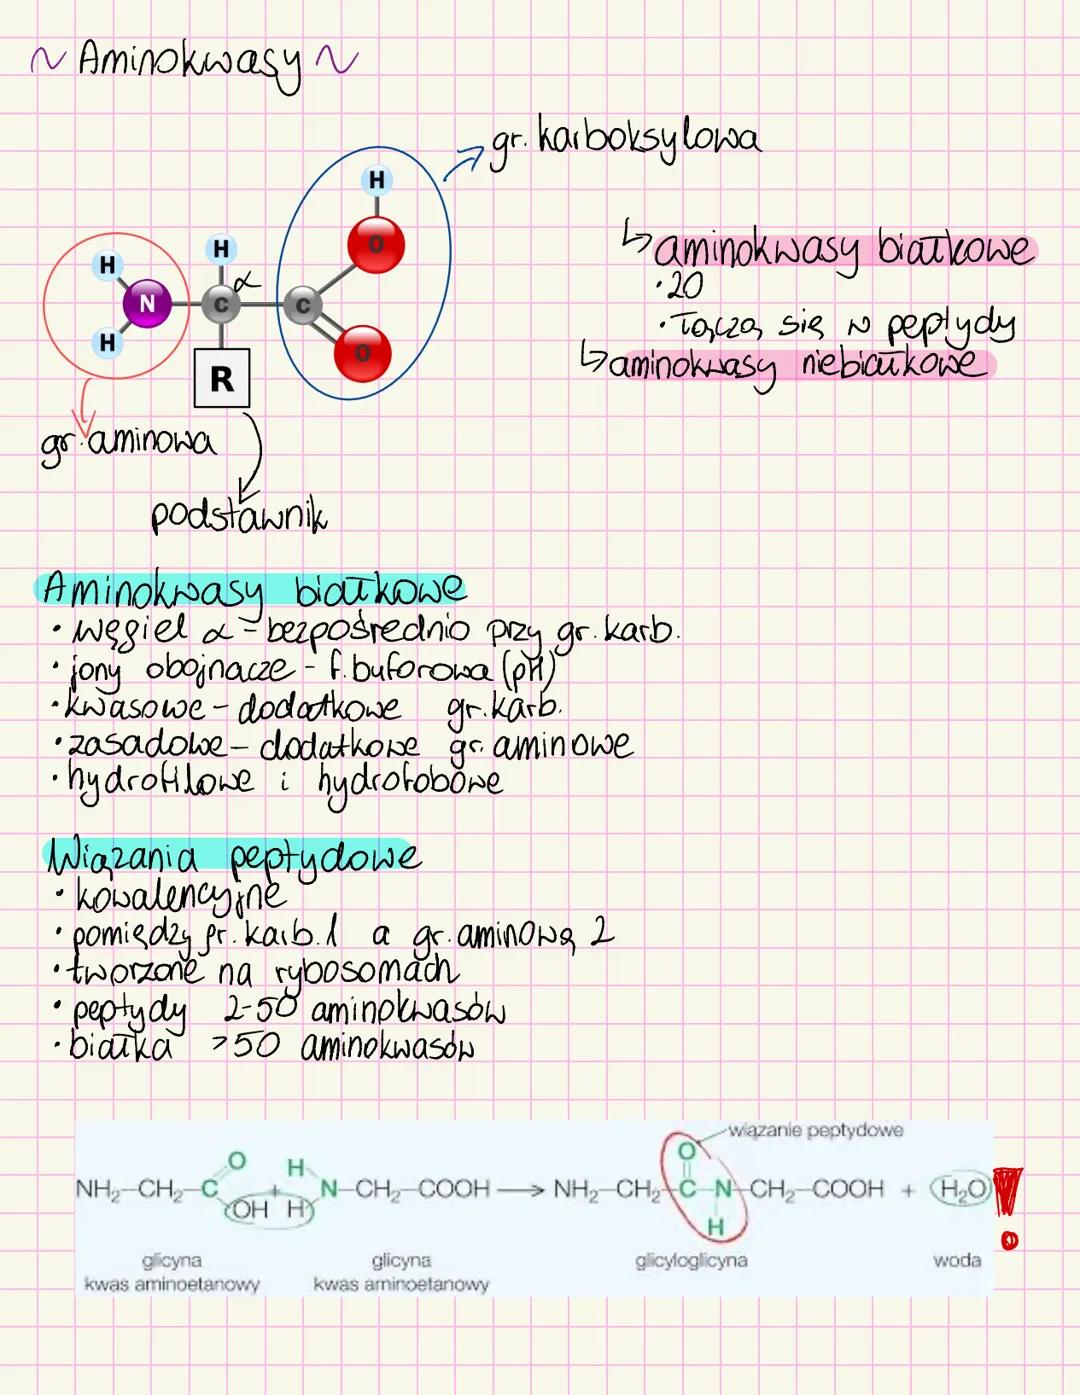 ~ Aminokwasy ~
gr. karboksylowa
H
O
H
H
α
N
C
C
H
O
R
gr. aminowa
podstawnik
↳ aminokwasy białkowe
· 20
· łączą się w peptydy
↳ aminokwasy niebiałkowe
Aminokwasy białkowe
· węgiel α - bezpośrednio przy gr. karb.
· jony obojnacze - f. buforowa (pH)
· kwasowe - dodatkowe gr. karb.
· zasadowe - dodatkowe gr. aminowe
· hydrofilowe i hydrofobowe
Wiązania peptydowe
· kowalencyjne
· pomiędzy gr. karb. 1 a gr. aminową 2
· tworzone na rybosomach
· peptydy 2-50 aminokwasów
· białka >50 aminokwasów
wiązanie peptydowe
O H O
NH₂–CH₂–C + N–CH₂–COOH ⟶ NH₂–CH₂–C–N–CH₂–COOH + H₂O !
OH H H
glicyna glicyna glicyloglicyna woda
kwas aminoetanowy kwas aminoetanowy